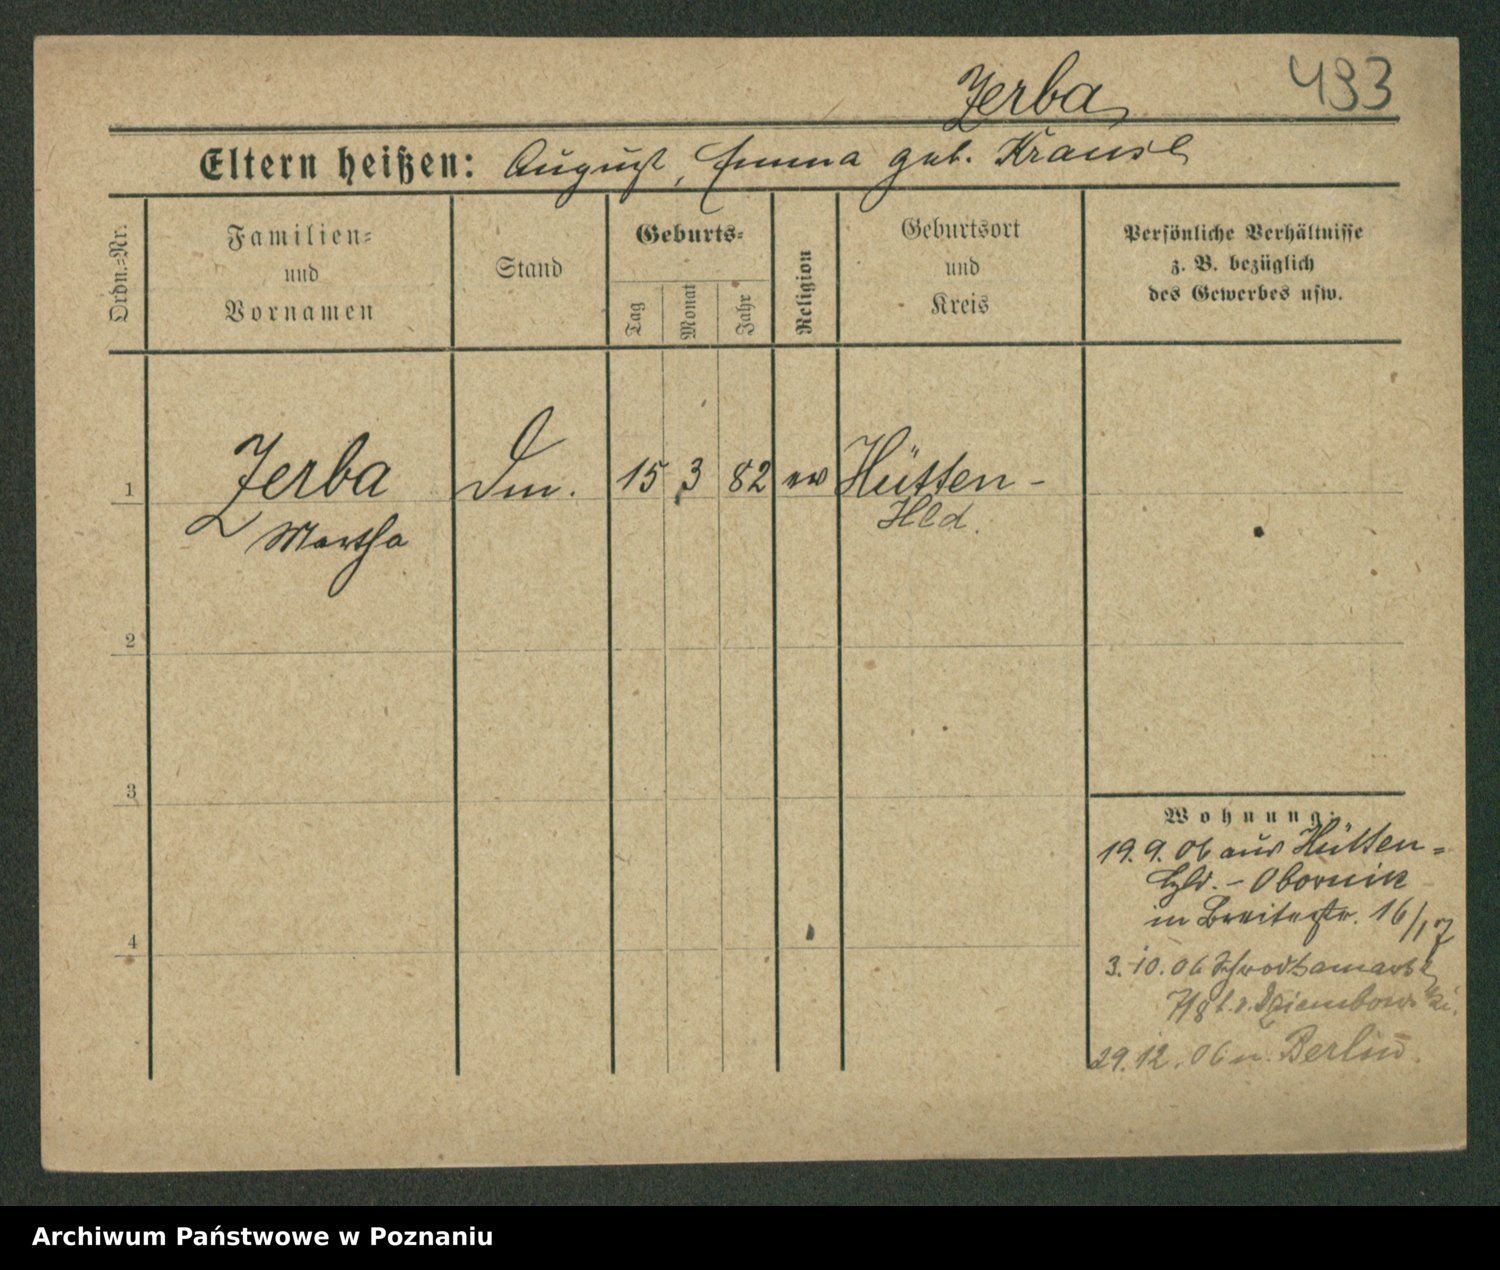 Zerba
493
Eltern heißen: August, Emma geb. Krause
Ordn.-Nr.
Familien-
und
Vornamen
Stand
Geburts-
Tag
Monat
Jahr
Religion
Geburtsort
und
Kreis
Persönliche Verhältnisse
z. B. bezüglich
des Gewerbes usw.
1
Zerba
Martha
15 3 82 ev Hütten-
Hld.
2
3
4
Wohnung:
19. 9. 06 aus Hütten-
Hld. - Obornik
in Breitestr. 16/17
3. 10. 06
7/8 b. v. Dziembowski.
29. 12. 06 n. Berlin.
Archiwum Państwowe w Poznaniu